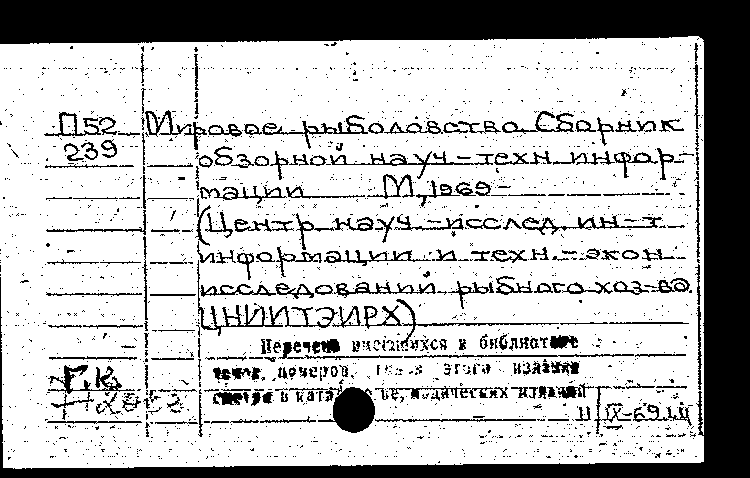 П52 Мировое рыболовство. Сборник
239 обзорной науч.-техн. инфор-
мации М, 1969-
(Центр. науч.-исслед. ин-т
информации и техн.-экон.
исследований рыбного хоз-ва.
ЦНИИТЭИРХ)
Перечень имеющихся в библиотеке
томов, номеров, этого издания
смотри в периодических изданий
Г.К.
II IX-69